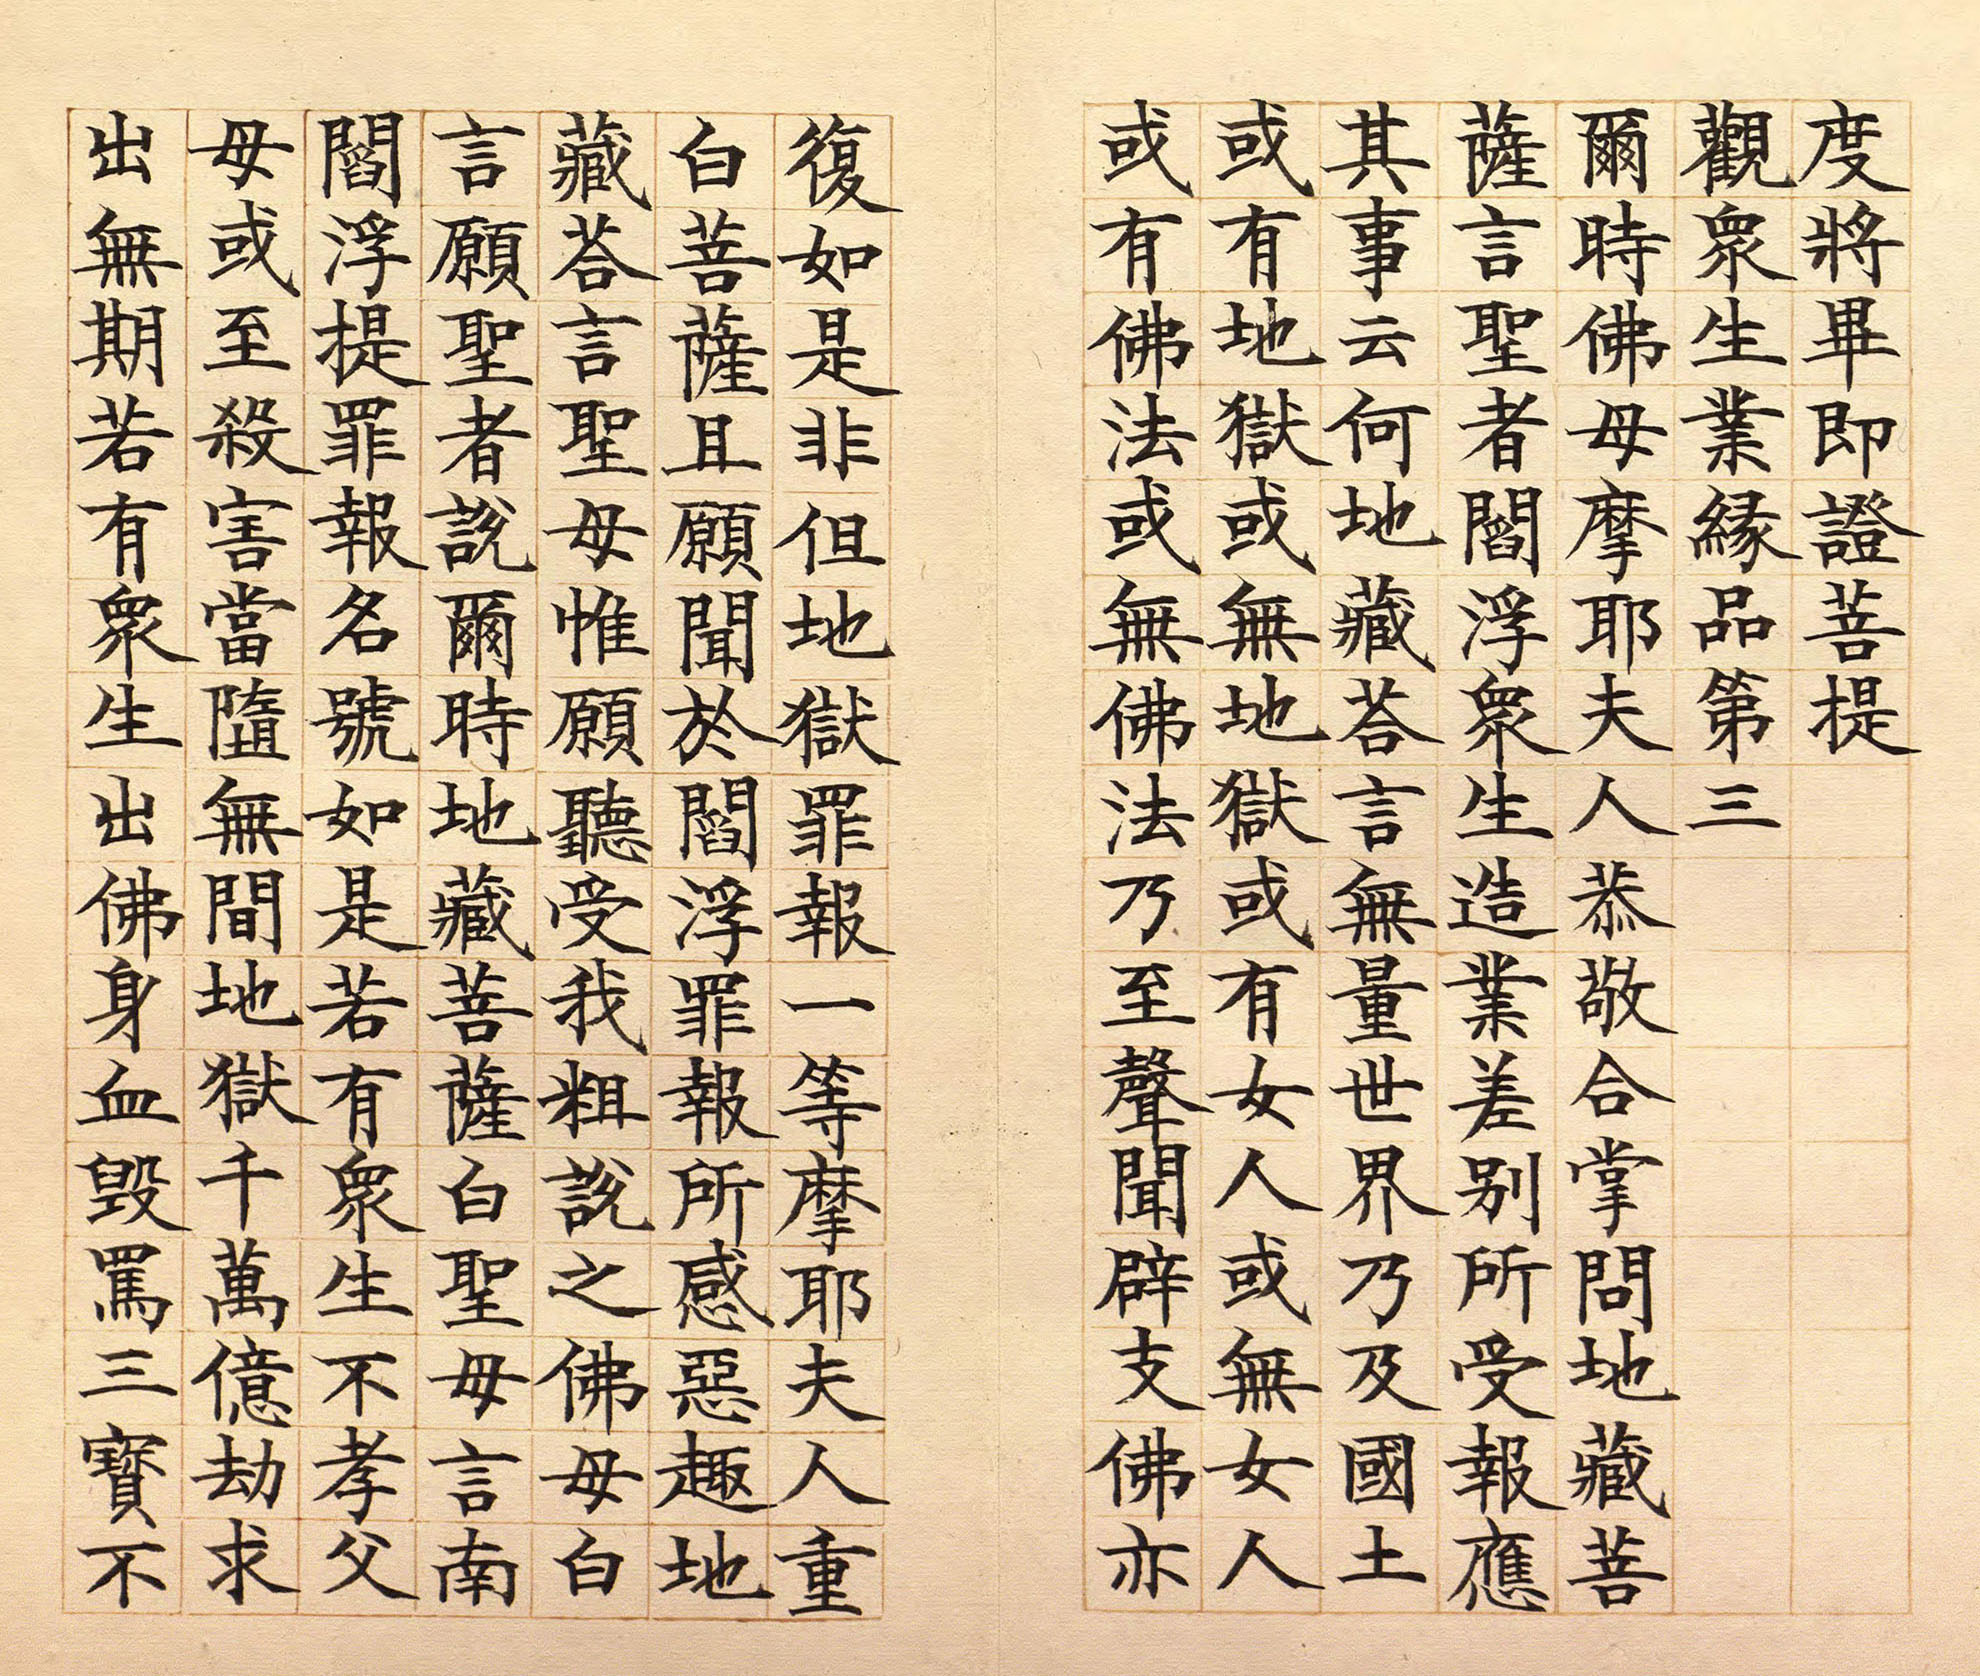 度將畢即證菩提
觀衆生業緣品第三
爾時佛母摩耶夫人恭敬合掌問地藏菩
薩言聖者閻浮衆生造業差别所受報應
其事云何地藏荅言無量世界乃及國土
或有地獄或無地獄或有女人或無女人
或有佛法或無佛法乃至聲聞辟支佛亦
復如是非但地獄罪報一等摩耶夫人重
白菩薩且願聞於閻浮罪報所感惡趣地
藏荅言聖母惟願聽受我粗說之佛母白
言願聖者說爾時地藏菩薩白聖母言南
閻浮提罪報名號如是若有衆生不孝父
母或至殺害當隨無間地獄千萬億劫求
出無期若有衆生出佛身血毀罵三寶不